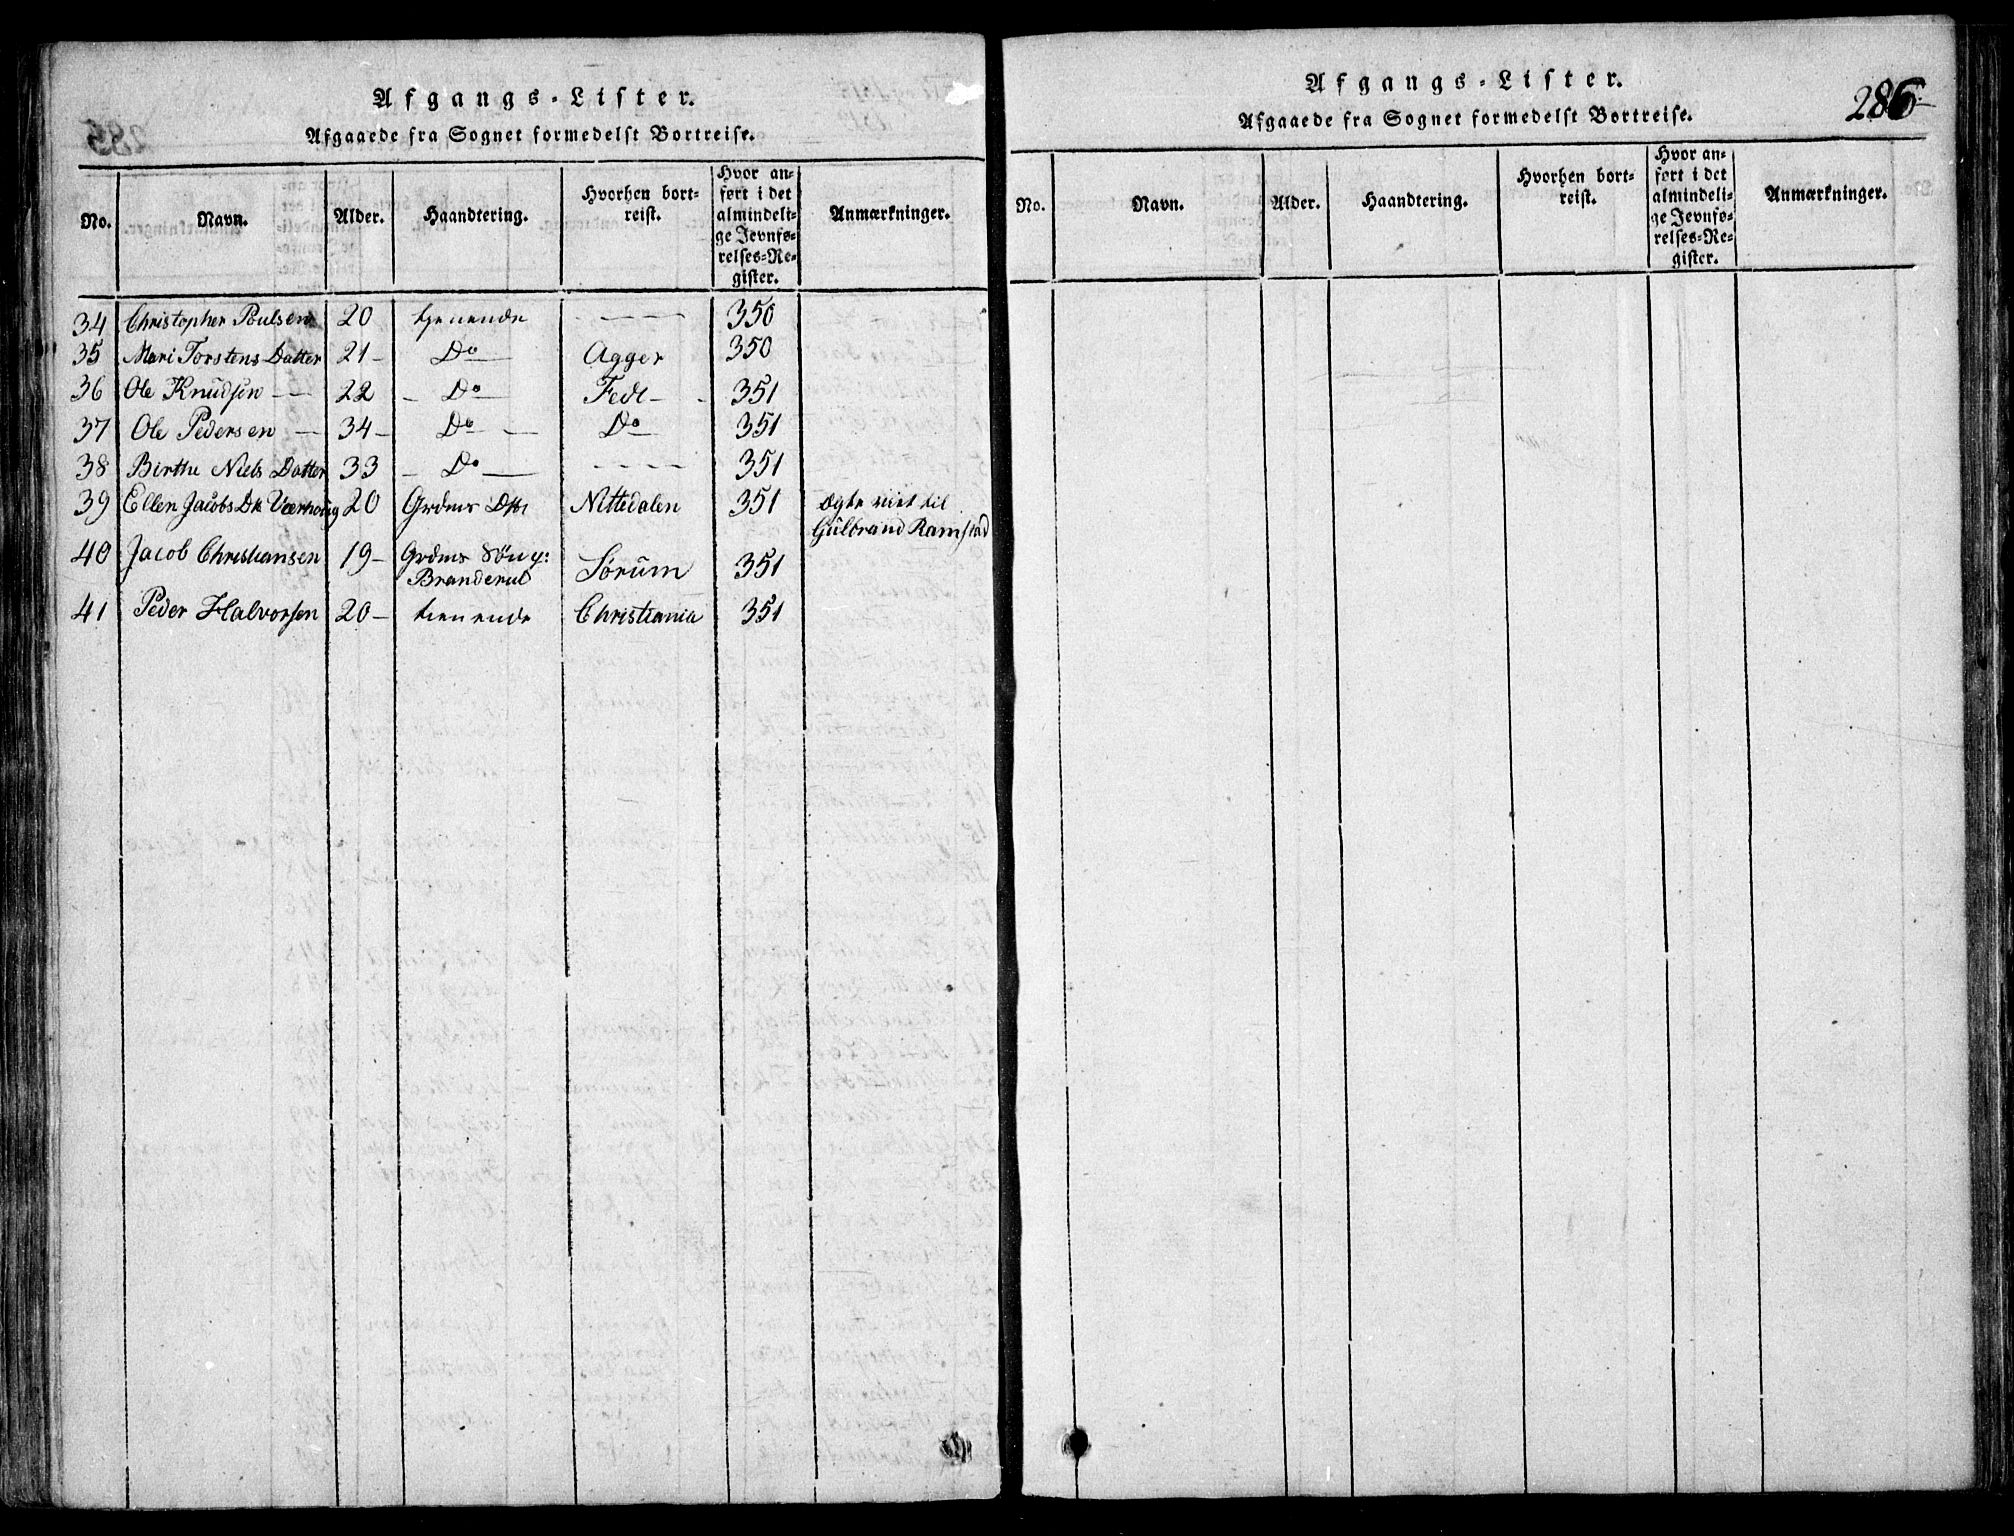 Afgangs-Lister.
Afgaaede fra Sognet formedelst Bortreise.
No. Navn. Alder. Haandtering. Hvorhen bort-
reist. Hvor an-
ført i det
almindeli-
ge Jevnfø-
relses-Re-
gister. Anmærkninger.
34 Christopher Poulsen 20 tjenende - - - - 350
35 Mari Torstens Datter 21 - Do Agger 350
36 Ole Knudsen - 22 - Do - Fedt - - 351
37 Ole Pedersen - 34 - Do - Do 351
38 Birthe Niels Datter 33 - Do - - - - - 351
39 Ellen Jacobs Dtr 20 Grdms Dtr Nittedalen 351 Ægte viet til
Gulbrand Ramstad
40 Jacob Christiansen 19 - Grdms Søn
Branderud Sørum 351
41 Peder Halvorsen 20 - tienende Christiania 351
Afgangs-Lister.
Afgaaede fra Sognet formedelst Bortreise.
286
No. Navn. Alder. Haandtering. Hvorhen bort-
reist. Hvor an-
ført i det
almindeli-
ge Jevnfø-
relses-Re-
gister. Anmærkninger.